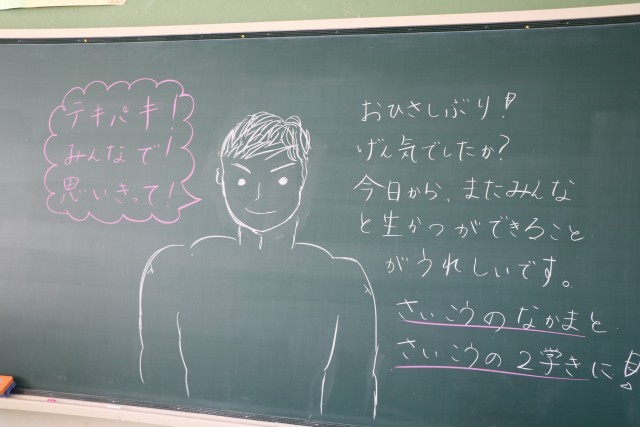 テキパキ!
みんなで!
思いきって!
おひさしぶり!
げん気でしたか?
今日から、またみんな
と生かつができること
がうれしいです。
さいこうのなかまと
さいこうの2学きに!